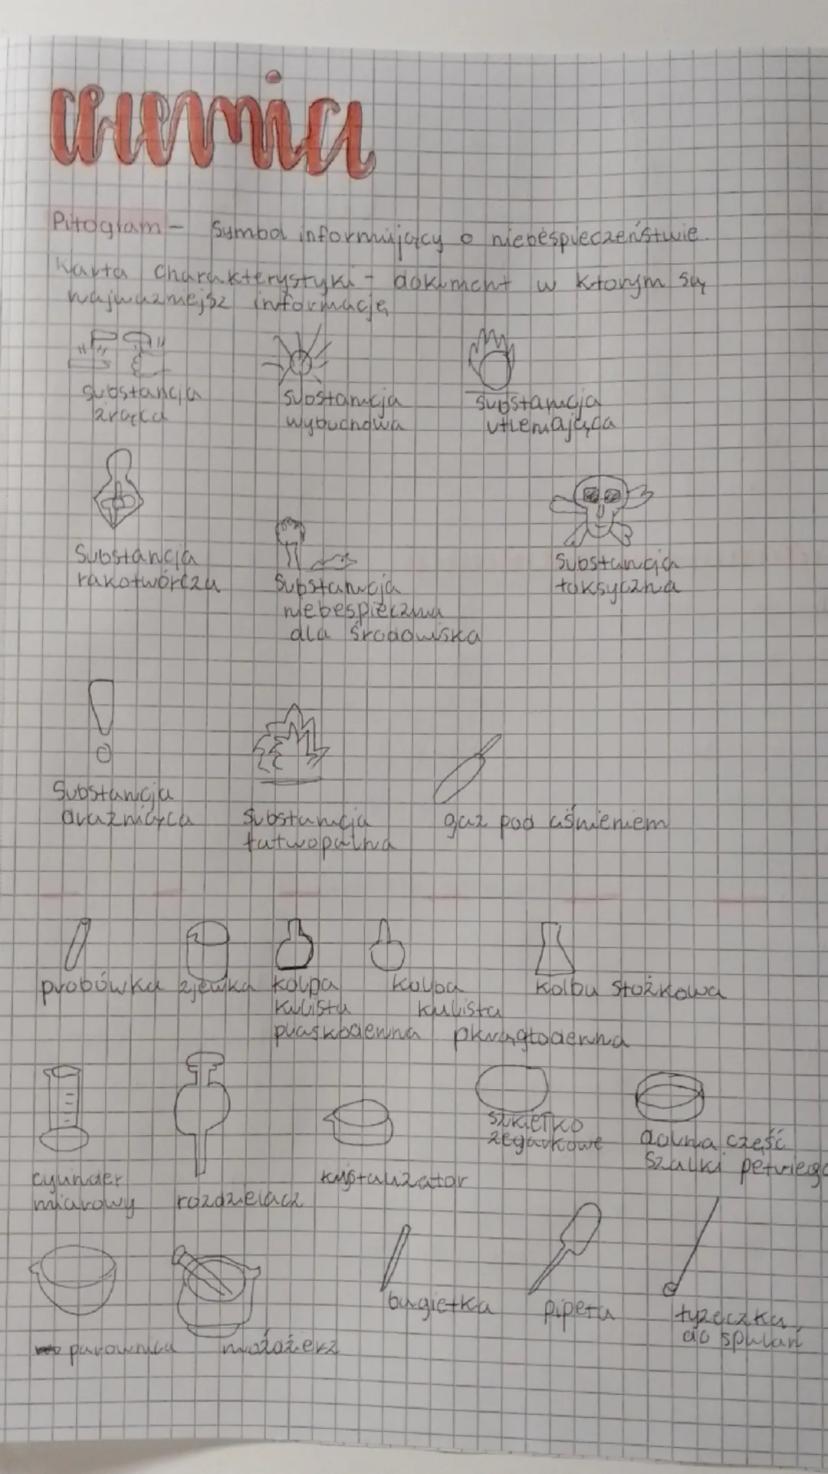 chemia
Piktogram - symbol informujący o niebespieczeństwie
Karta charakterystyki - dokument w ktorym są
najważniejsz informacje
substancja
żrąca
substancja
wybuchowa
substancja
utleniająca
substancja
rakotwórcza
substancja
niebespieczna
dla środowiska
substancja
toksyczna
substancja
drażniąca
substancja
łatwopalna
gaz pod ciśnieniem
probówka
zlewka
kolba
kulista
płaskodenna
kolba
kulista
okrągłodenna
kolba stożkowa
cylinder
miarowy
rozdzielacz
krystalizator
szkiełko
zegarkowe
dolna część
szalki petriego
parownica
moździerz
bagietka
pipeta
łyżeczka
do spalań